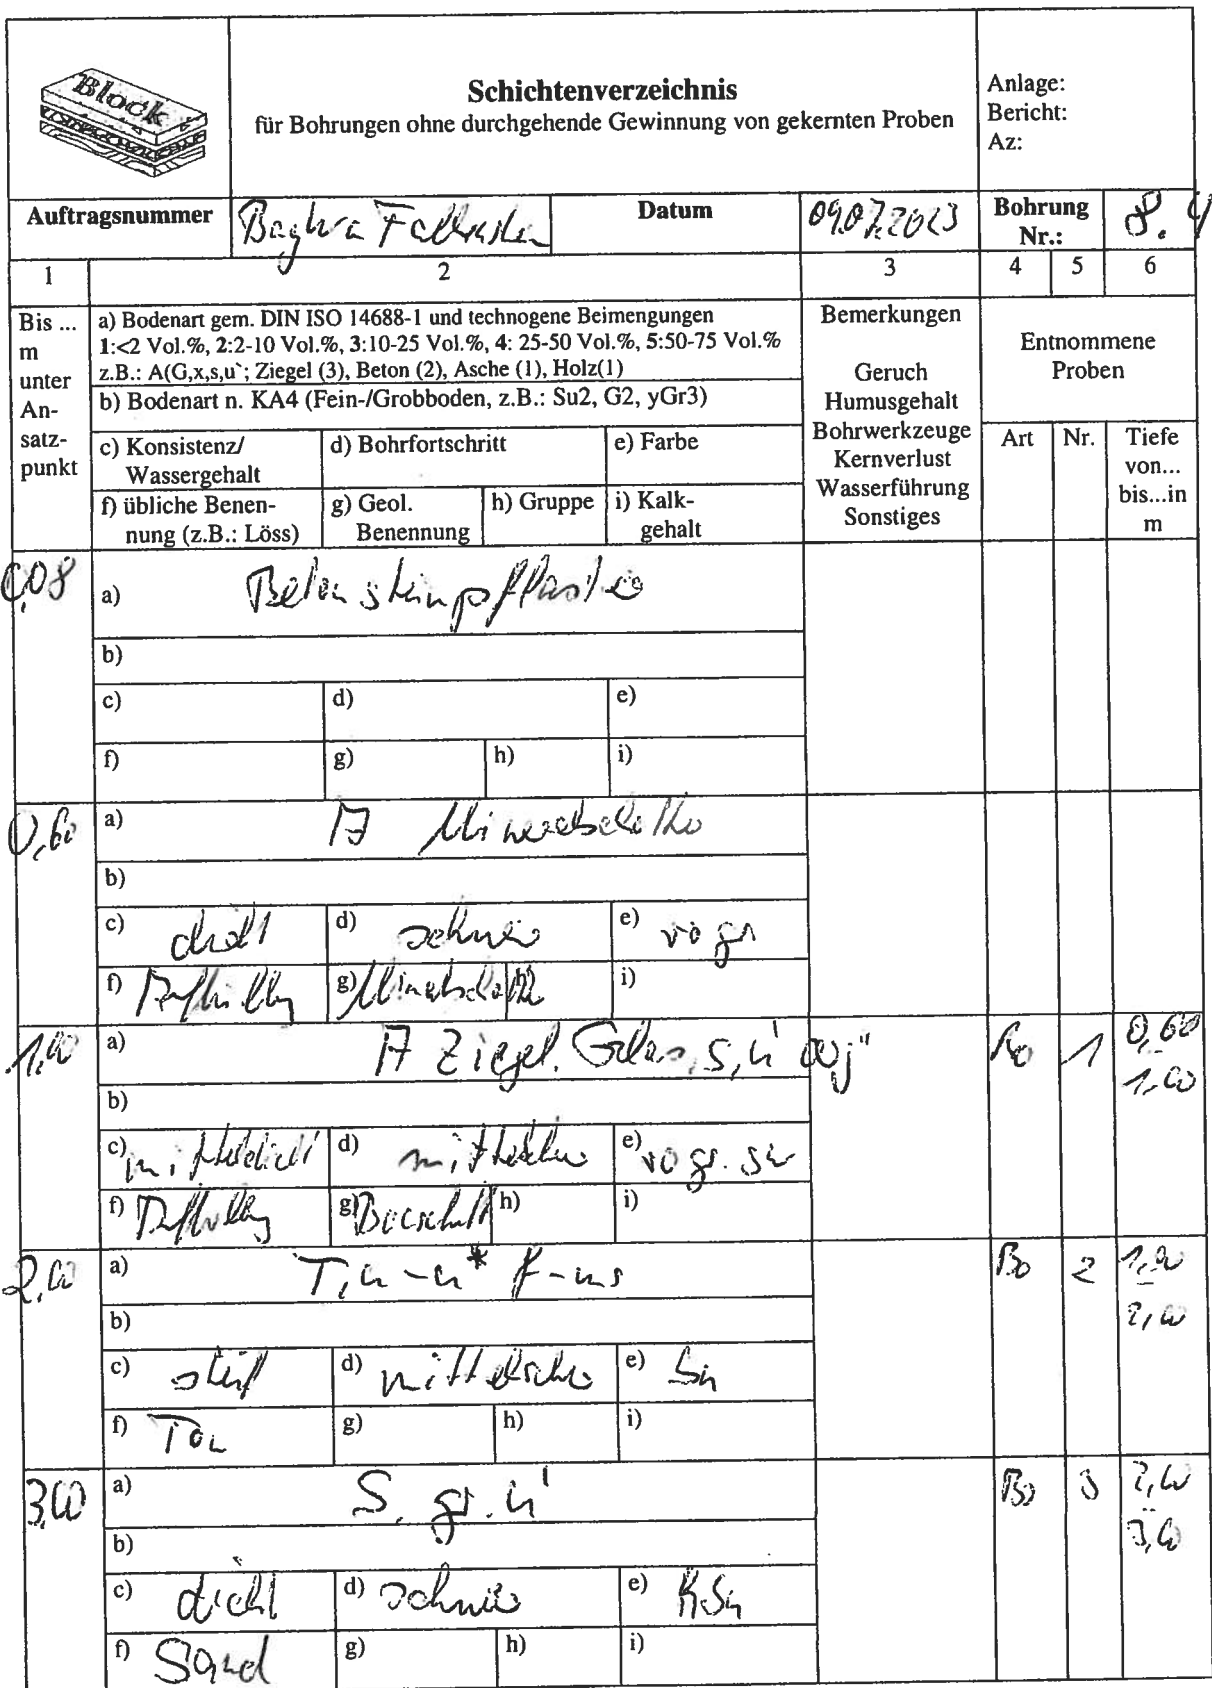 Block
Schichtenverzeichnis
für Bohrungen ohne durchgehende Gewinnung von gekernten Proben
Anlage:
Bericht:
Az:
Auftragsnummer
Datum
09.07.2023
Bohrung
Nr.:
8.4
1 2 3 4 5 6
Bis ...
m
unter
An-
satz-
punkt
a) Bodenart gem. DIN ISO 14688-1 und technogene Beimengungen
1:<2 Vol.%, 2:2-10 Vol.%, 3:10-25 Vol.%, 4: 25-50 Vol.%, 5:50-75 Vol.%
z.B.: A(G,x,s,u`; Ziegel (3), Beton (2), Asche (1), Holz(1)
b) Bodenart n. KA4 (Fein-/Grobboden, z.B.: Su2, G2, yGr3)
c) Konsistenz/
Wassergehalt
d) Bohrfortschritt
e) Farbe
f) übliche Benen-
nung (z.B.: Löss)
g) Geol.
Benennung
h) Gruppe
i) Kalk-
gehalt
Bemerkungen
Geruch
Humusgehalt
Bohrwerkzeuge
Kernverlust
Wasserführung
Sonstiges
Entnommene
Proben
Art
Nr.
Tiefe
von...
bis...in
m
0,08
a) Betonsteinpflaster
b)
c) d) e)
f) g) h) i)
0,60
a) A
b)
c) dicht d) schwer e) ro gr
f) Auffüllung g) h) i)
1,00
a) A Ziegel. Glas, s, u'
1
0,60
1,00
b)
c) mitteldicht d) mittelschw e) ro gr. sw
f) Auffüllung g) Bauschutt h) i)
2,00
a) T, u-u* f-ms
Bo 2 1,00
2,00
b)
c) steif d) mittelschw e)
f) Ton g) h) i)
3,00
a) S, gs, u'
Bo 3 2,00
3,00
b)
c) dicht d) schwer e)
f) Sand g) h) i)